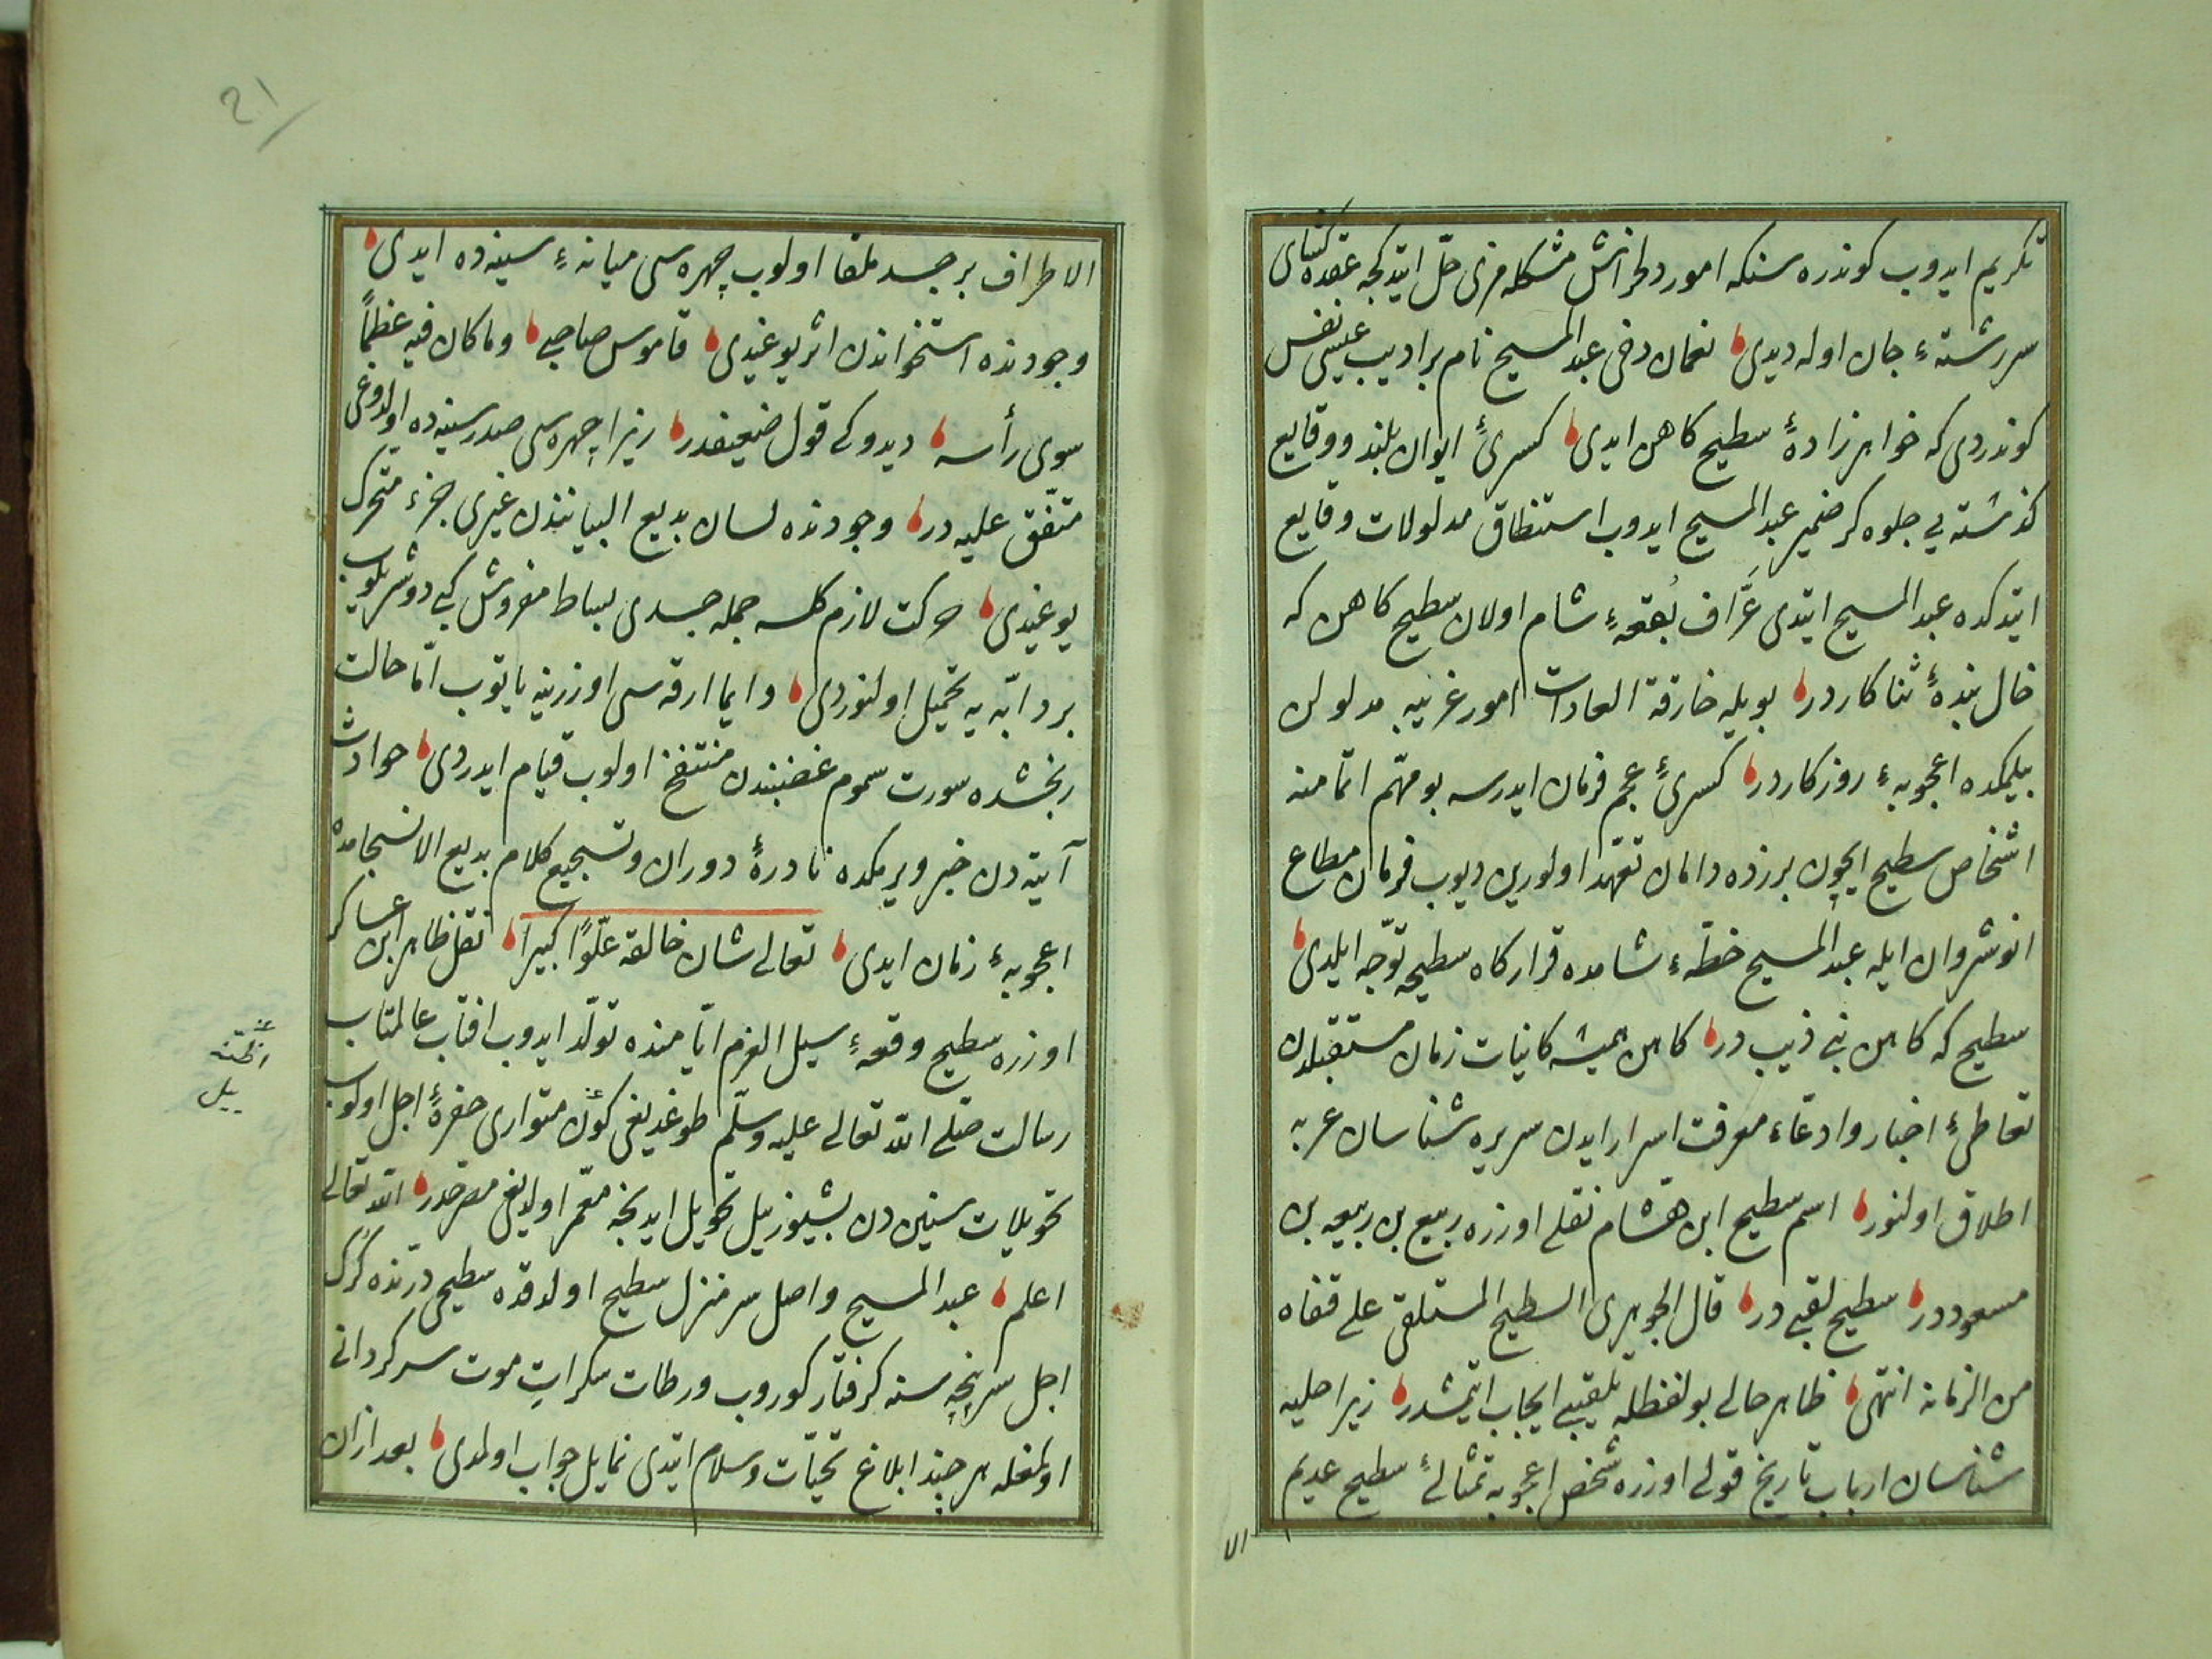 تكريم ايدوب كوندره سنكه امور دلخراش مشكله مزى حلّ ايتدكجه عقده كشاى
سررشتهٔ جان اوله ديدى نعمان دخى عبد المسيح نام بر اديب عيسى نفس
كوندردى كه خواهرزادهٔ سطيح كاهن ايدى كسرىٔ ايوان بلند ووقايع
كذشته يى جلوه كر ضمير عبد المسيح ايدوب استنطاق مدلولات وقايع
ايتدكده عبد المسيح ايتدى عَرَّاف بُقعهٔ شام اولان سطيح كاهن كه
خال بندهٔ ثناكاردر بويله خارقة العادات امور غريبه مدلولن
بيلمكده اعجوبهٔ روزكاردر كسرىٔ عجم فرمان ايدرسه بو مهمّ اتمامنه
اشخاص سطيح ايچون برزده دامان تعهّد اولورين ديوب فرمان مطاع
انوشروان ايله عبد المسيح خطّهٔ شامده قراركاه سطيحه توجّه ايلدى
سطيح كه كاهن بنى ذيب در كاهن هميشه كاينات زمان مستقبلدن
تعاطىٔ اخبار وادعاء معرفت اسرار ايدن سريره شناسان عربه
اطلاق اولنور اسم سطيح ابن هشام نقلى اوزره ربيع بن ربيعه بن
مسعوددر سطيح لقبى در قال الجوهرى السطيح المستلقى على قفاه
من الزمانه انتهى ظاهر حالى بو لفظله تلقيبى ايجاب ايتمشدر زيرا حليه
شناسان ارباب تاريخ قولى اوزره شخص اعجوبه تمثالىٔ سطيح عديم
الا
21
الاطراف بر جسد ملقا اولوب چهره سى ميانهٔ سينه ده ايدى
وجودنده استخواندن اثر يوغيدى قاموس صاحبى وما كان فيه عظماً
سوى رأسه ديدوكى قول ضعيفدر زيرا چهره سى صدر سينه ده اولدوغى
متّفق عليه در وجودنده لسان بديع البياننذن غيرى جزء متحرك
يوغيدى حركت لازم كلسه جمله جسدى بساط مفروش كبى دوشريلوب
بر دابّه يه تحميل اولنوردى دايما ارقه سى اوزرينه ياتوب امّا حالت
رنجشده سورت سموم غضبندن منتفخ اولوب قيام ايدردى حوادث
آتيه دن خبر ويرمكده نادرهٔ دوران وتسجيع كلام بديع الانسجامده
اعجوبهٔ زمان ايدى تعالى شان خالقه علوًّا كبيرا نقل ظاهر ابن عساكر
اوزره سطيح وقعهٔ سيل العرم ايّامنده تولّد ايدوب افتاب عالمتاب
رسالت صلّى الله تعالى عليه وسلّم طوغديغى كون متوارى حفرهٔ اجل اولوب
تحويلات سنين دن بشيوز ييل تحويل ايدنجه معمّر اولديغى مصرّحدر الله تعالى
اعلم عبد المسيح واصل سرمنزل سطيح اولدقده سطيحى درنده كرك
اجل سرپنجه سنه كرفتار كوروب ورطات سكرات موت سركردانى
اولمغله هر چند ابلاغ تحيّات وسلام ايتدى نمايل جواب اولمدى بعد ازان